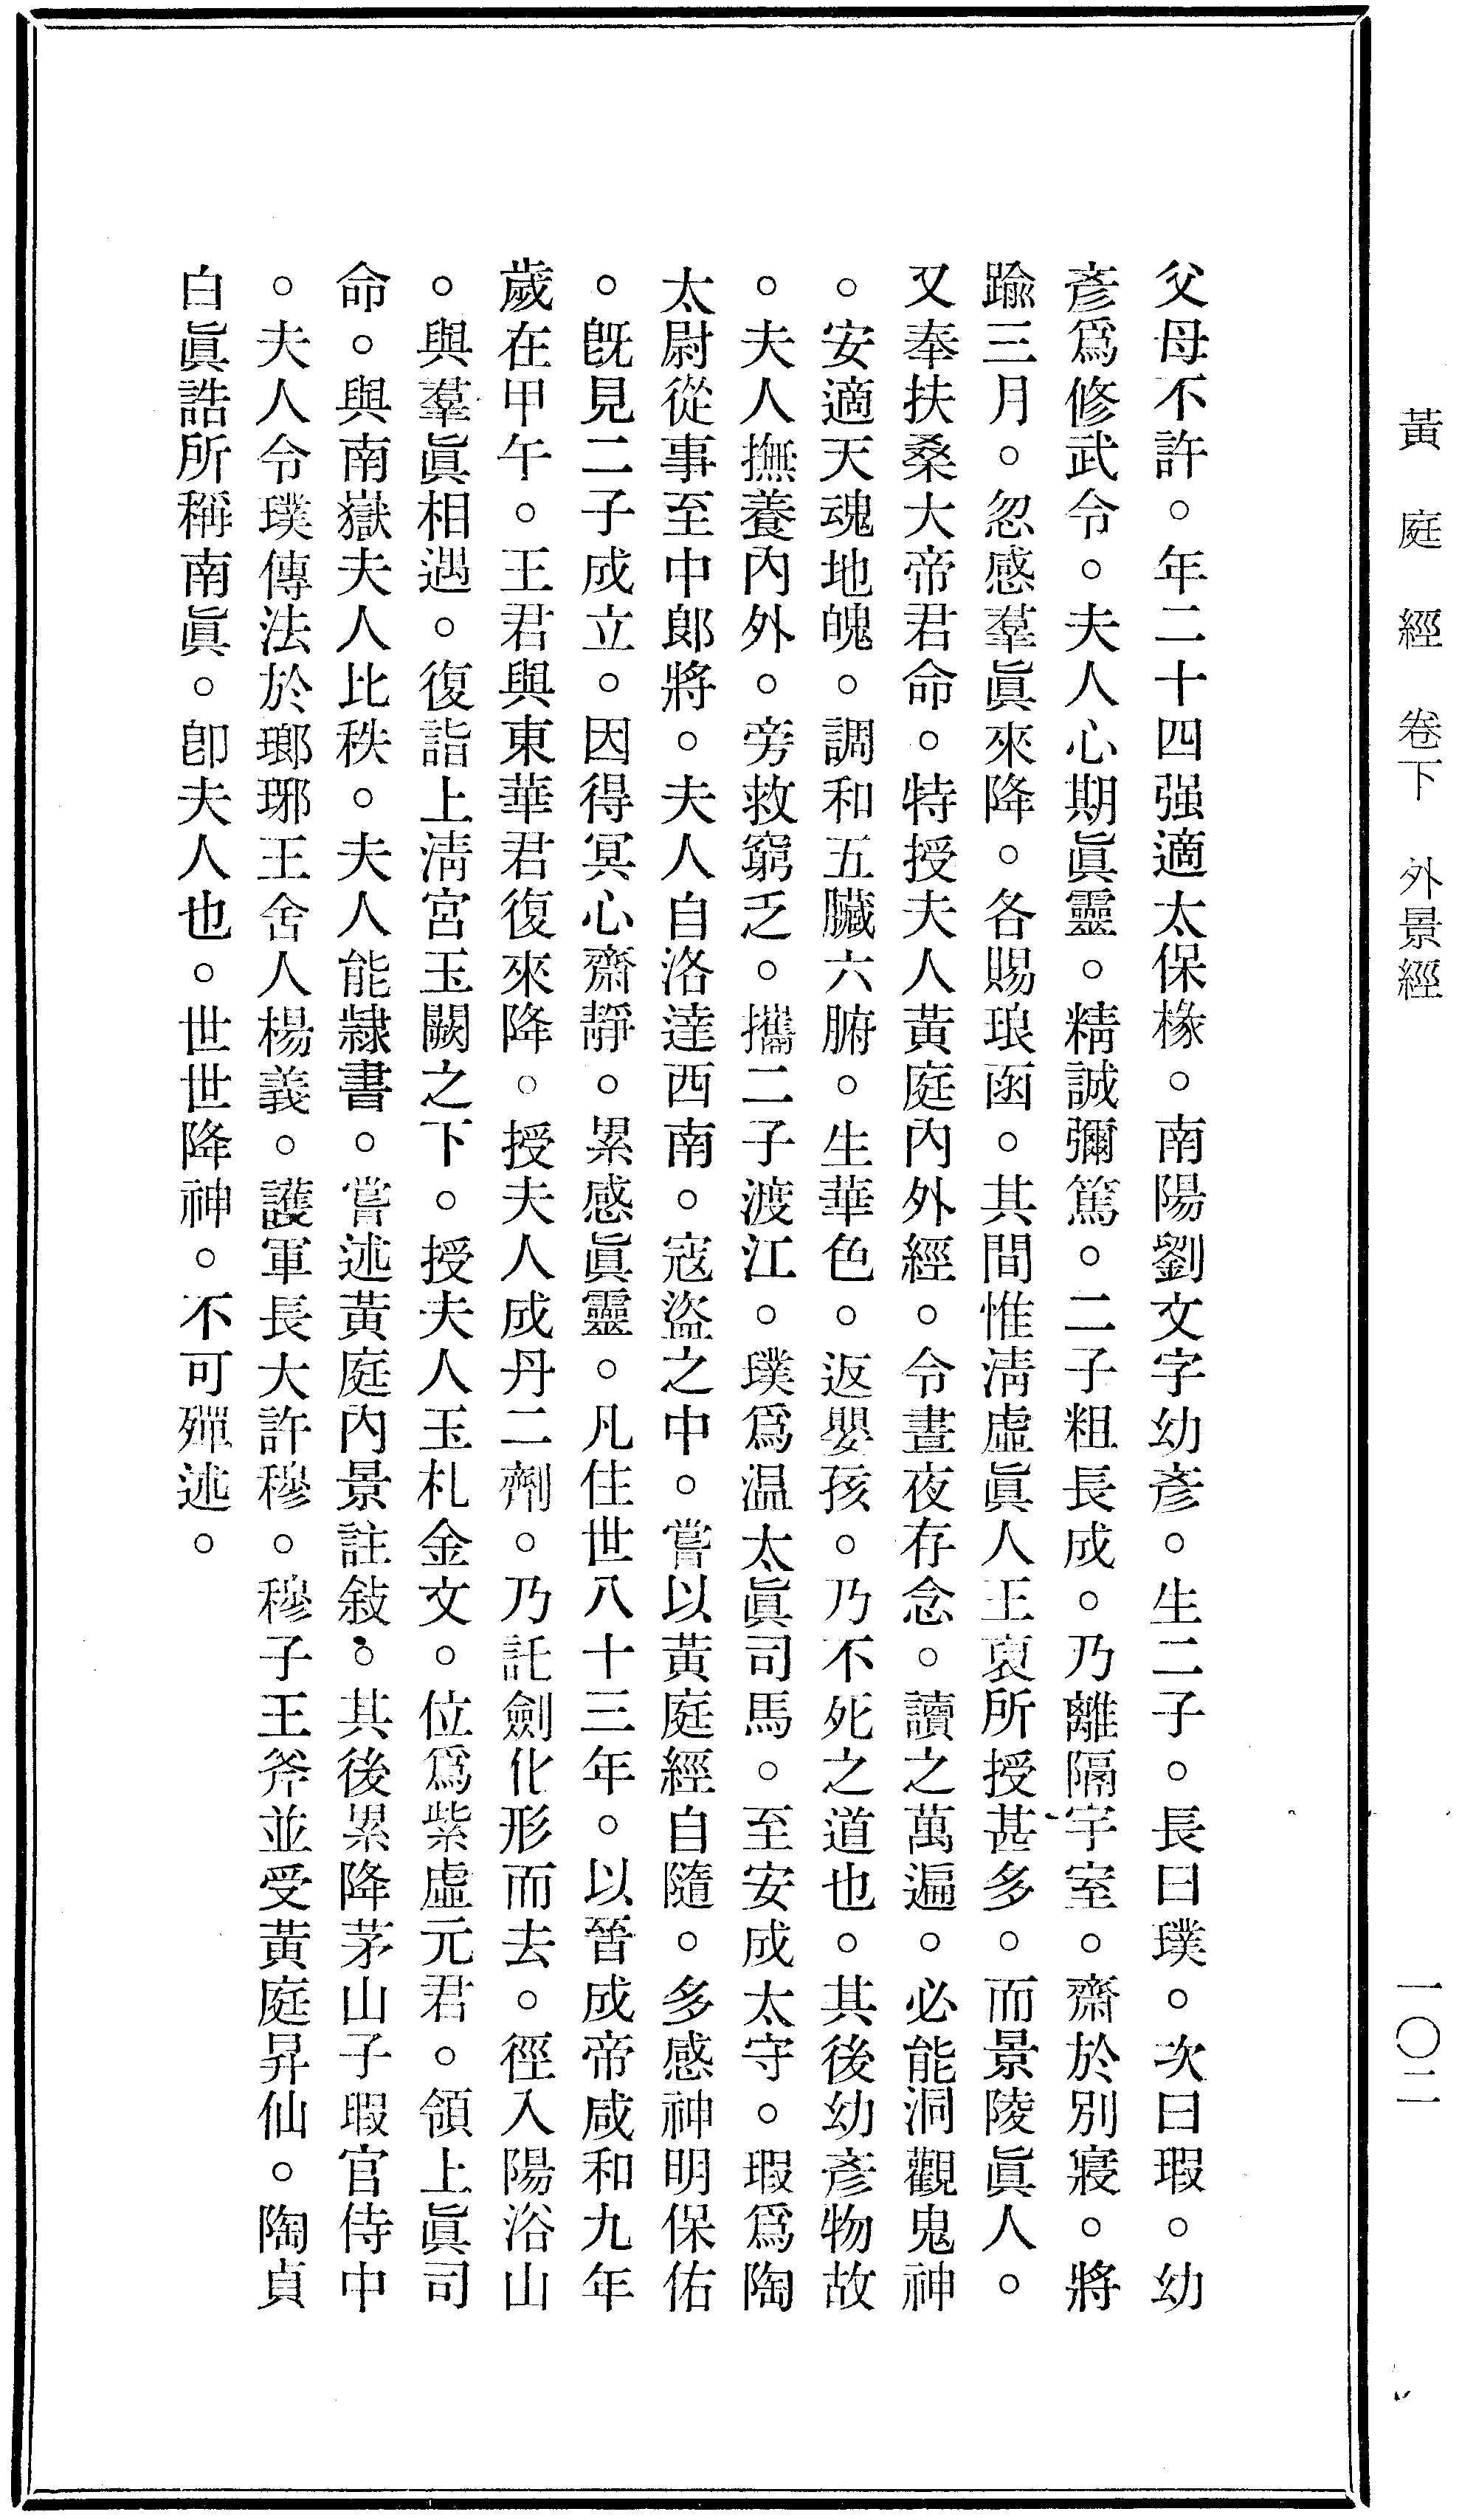 黃庭經 卷下 外景經 一〇二
父母不許。年二十四强適太保椽。南陽劉文字幼彥。生二子。長曰璞。次曰瑕。幼
彥爲修武令。夫人心期眞靈。精誠彌篤。二子粗長成。乃離隔宇室。齋於別寢。將
踰三月。忽感羣眞來降。各賜琅函。其間惟淸虛眞人王裒所授甚多。而景陵眞人。
又奉扶桑大帝君命。特授夫人黃庭內外經。令晝夜存念。讀之萬遍。必能洞觀鬼神
。安適天魂地魄。調和五臟六腑。生華色。返嬰孩。乃不死之道也。其後幼彥物故
。夫人撫養內外。旁救窮乏。攜二子渡江。璞爲温太眞司馬。至安成太守。瑕爲陶
太尉從事至中郞將。夫人自洛達西南。寇盜之中。嘗以黃庭經自隨。多感神明保佑
。旣見二子成立。因得冥心齋靜。累感眞靈。凡住世八十三年。以晉成帝咸和九年
歲在甲午。王君與東華君復來降。授夫人成丹二劑。乃託劍化形而去。徑入陽浴山
。與羣眞相遇。復詣上淸宮玉闕之下。授夫人玉札金文。位爲紫虛元君。領上眞司
命。與南嶽夫人比秩。夫人能隸書。嘗述黃庭內景註敍。其後累降茅山子瑕官侍中
。夫人令璞傳法於瑯琊王舍人楊義。護軍長大許穆。穆子王斧並受黃庭昇仙。陶貞
白眞誥所稱南眞。卽夫人也。世世降神。不可殫述。